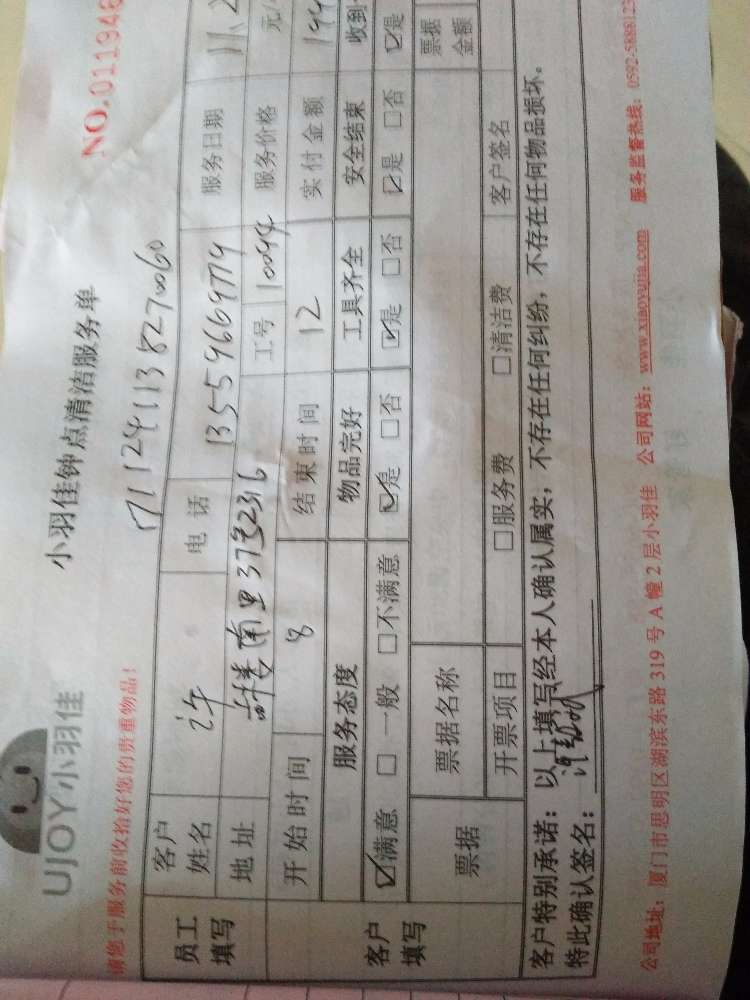 UJOY小羽佳
小羽佳钟点清洁服务单
NO.011946
请您于服务前收拾好您的贵重物品!
1711241138270060
员工填写 客户姓名 许 电话 13559669779 服务日期 11.2
地址 南里37号2316 工号 10094 服务价格 元/
客户填写 开始时间 8 结束时间 12 实付金额 144
服务态度 物品完好 工具齐全 安全结束 收到
☑满意 □一般 □不满意 ☑是 □否 ☑是 □否 ☑是 □否 ☑是
票据 票据名称 票据金额
开票项目 □服务费 □清洁费 客户签名
客户特别承诺:以上填写经本人确认属实,不存在任何纠纷,不存在任何物品损坏。
特此确认签名:
公司地址:厦门市思明区湖滨东路 319 号 A 幢 2 层小羽佳 公司网站:www.xiaoyujia.com 服务监督热线:0592-5888123